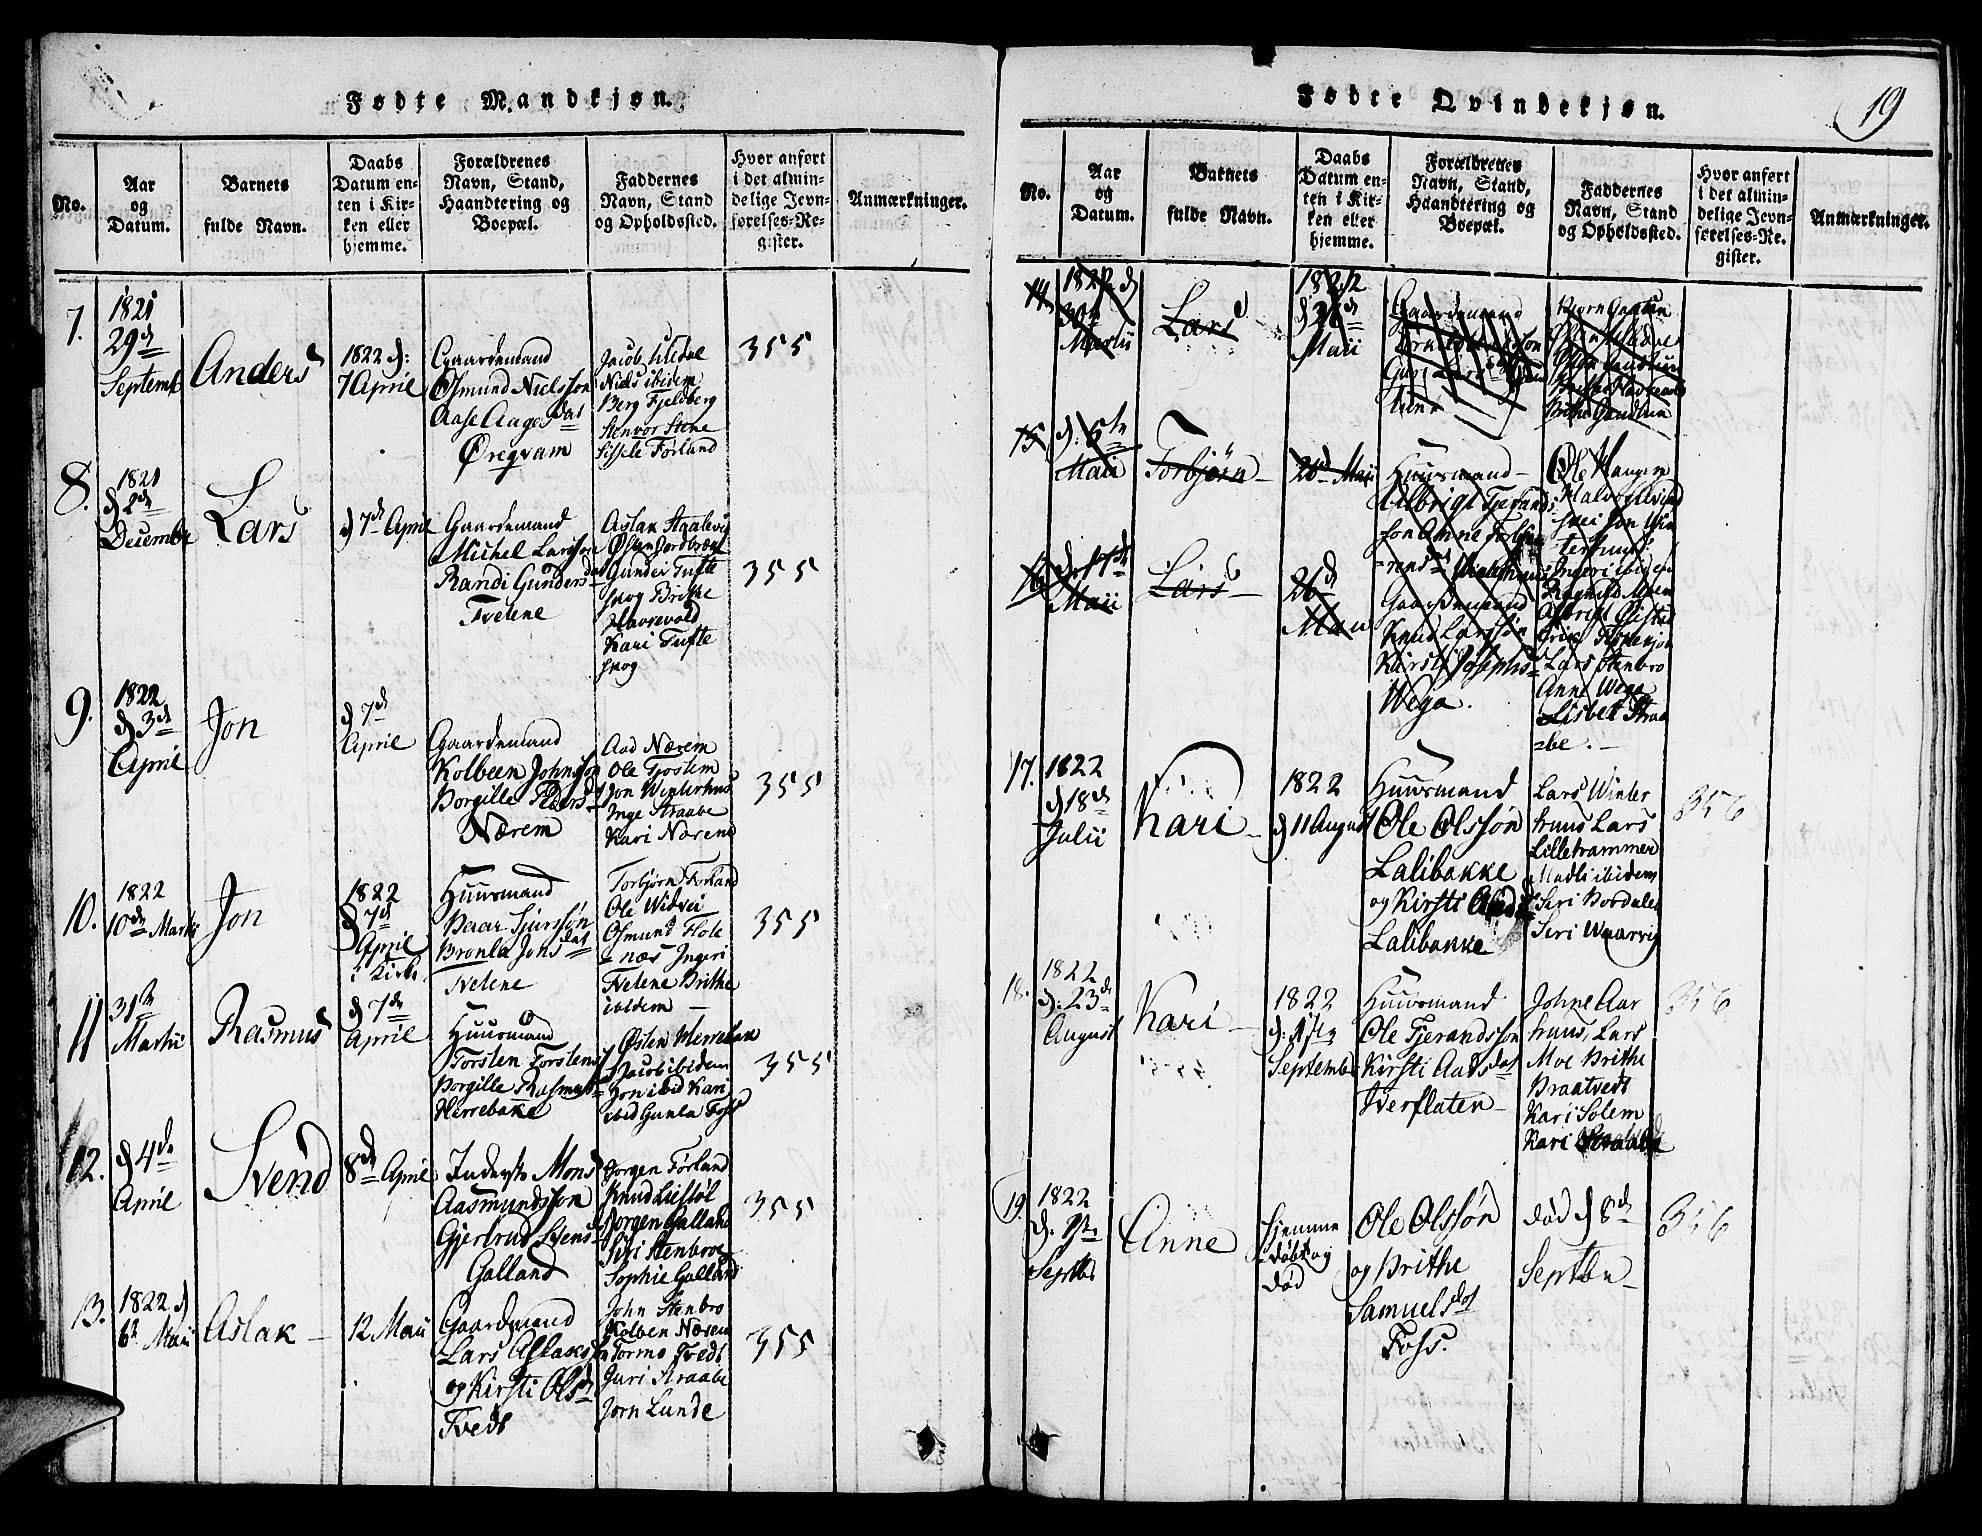 Fødte Mandkjøn.
No.
Aar
og
Datum.
Barnets
fulde Navn.
Daabs
Datum en-
ten i Kir-
ken eller
hjemme.
Forældrenes
Navn, Stand,
Haandtering og
Boepæl.
Faddernes
Navn, Stand
og Opholdssted.
Hvor anført
i det almin-
delige Jevn-
førelses-Re-
gister.
Anmærkninger.
7.
1821
29de
Septemb
Anders
1822 d:
7 April
Gaardemand
Osmund Nielssøn
Aase Aages dat
Øreqvam
Jacob
Niels ibidem
Berg Fjeldberg
Stenvor Stene
Sissele Førland
355
8.
1821
d 2de
Decembr
Lars
d 7de April
Gaardemand
Michel Larssøn
Randi Gunders dat
Tvetene
Aslak Staalevig
Østen Jordbræk
Gunder Tufte
skog Brithe
Havrevold
Kari Tufte
skog
355
9.
1822
d 3de
April
Jon
d 7de
April
Gaardemand
Kolbeen Johnssøn
Borgille Peders d
Nærem
Aad Nærem
Ole Tjostem
Jon Winterhus
Inge Straabe
Kari Nærem
355
10.
1822
10de Martii
Jon
1822
d 7de
April
i Kirke
Huusmand
Baar Sjurssøn
Bronla Jons dat
Tvetene
Torbjørn Førland
Ole Widvei
Osmund Flote
næs Ingeri
Tvetene Brithe
ibidem
355
11
31te
Martii
Rasmus
d 7de
April
Huusmand
Torsten Torstens
Borgille Rasmusd
Herrebakke
Østen Herrebak
Jacob ibidem
Jon ibid Kari
ibid Gunla Foss
355
12.
d 4de
April
Svend
8de April
Inderste Mons
Aasmundssøn
Gjertrud Svensd
Galland
Jorgen Førland
Knud Liestøl
Jorgen Galland
Siri Stenbroe
Sophie Galland
355
13.
1822 d
6te Maii
Aslak
12 Maii
Gaardmand
Lars Aslakss
og Kirsti Olsd
Tvedt
John Stenbro
Kolben Nærem
Tormo Tvedt
Juri Straabe
Jorn Lunde
355
Fødte Qvindekjøn.
19
No.
Aar
og
Datum.
Barnets
fulde Navn.
Daabs
Datum en-
ten i Kir-
ken eller
hjemme.
Forældrenes
Navn, Stand,
Haandtering og
Boepæl.
Faddernes
Navn, Stand
og Opholdssted.
Hvor anført
i det almin-
delige Jevn-
førelses-Re-
gister.
Anmærkninger.
14
1822 d
30te
Martii
Lars
1822
d 26de
Maii
Gaardemand
15
d: 5te
Maii
Torbjørn
26de Maii
Huusmand
Albrigt Tjerands
søn Anne Torbjø
Winterhuus
Ole
Win
terhuus
16
d: 17de
Maii
Lars
26de
Maii
Gaardemand
Knud Larssøn
Kirsti Josephsd
Wega.
Lars Stenbro
Anne Wega
Lisbet Straa
be.
17.
1822
d 18de
Julii
Kari
1822
d 11 August
Huusmand
Ole Olssøn
Lalibakke
og Kirsti
Lalibakke
Lars Winter
huus Lars
Lillehammer
Madli ibidem
Siri Hordalen
Siri Waarvig
356
18.
1822
d: 23de
August
Kari
1822
d: 1ste
Septembr
Huusmand
Ole Tjerandssøn
Kirsti Aadsdat
Tverflaten
Johne Aar
huus, Lars
Moe Brithe
Braatvedt
Kari Solem
Kari Straabe
356
19.
1822
d. 1ste
Septbr
Anne
Hjemme
døbt og
død
Ole Olssøn
og Brithe
Samuelsdat
Foss.
død d 8de
Septbr
356